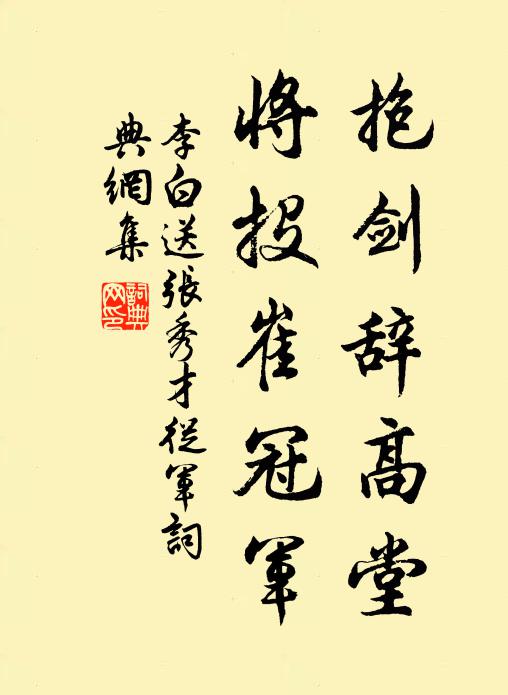 抱剑辞高堂
将投崔冠軍
李白送張秀才從軍詞
典網集
詞典
网印